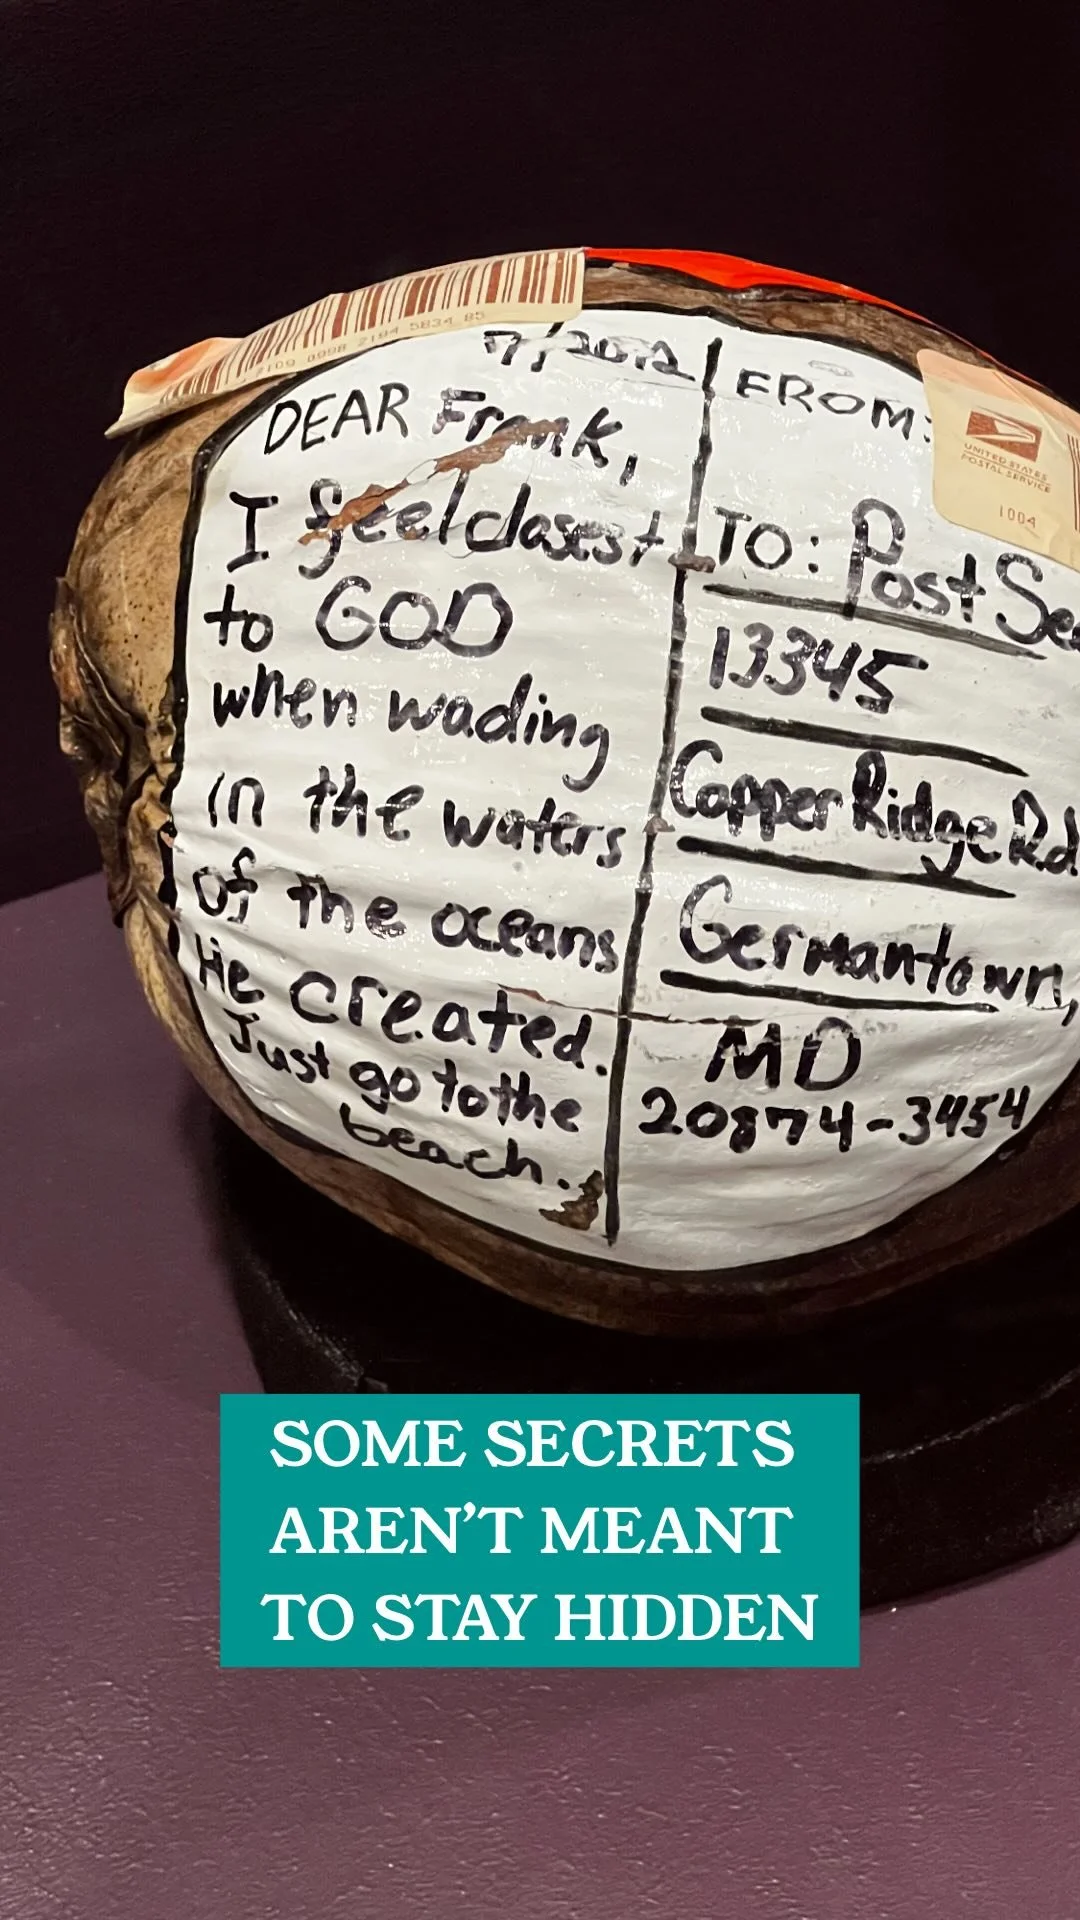 7109 0998 2194 5834 85
7/2012
DEAR Frank,
I feel closest
to GOD
when wading
in the waters
of the oceans
He created.
Just go to the
beach.
FROM:
TO: Post Se
13345
Copper Ridge Rd
Germantown,
MD
20874-3454
UNITED STATES
POSTAL SERVICE
1004
SOME SECRETS
AREN'T MEANT
TO STAY HIDDEN